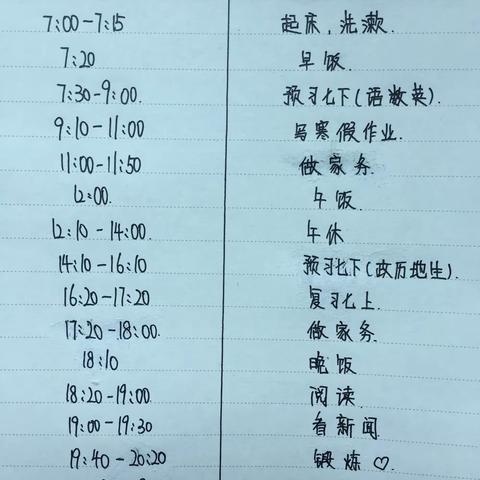 7:00-7:15 起床,洗漱.
7:20 早饭.
7:30-9:00. 预习七下(语数英).
9:10-11:00 写寒假作业.
11:00-11:50 做家务.
12:00. 午饭.
12:10-14:00. 午休
14:10-16:10 预习七下(政历地生).
16:20-17:20 复习七上.
17:20-18:00. 做家务.
18:10 晚饭
18:20-19:00. 阅读.
19:00-19:30 看新闻.
19:40-20:20 锻炼♡.